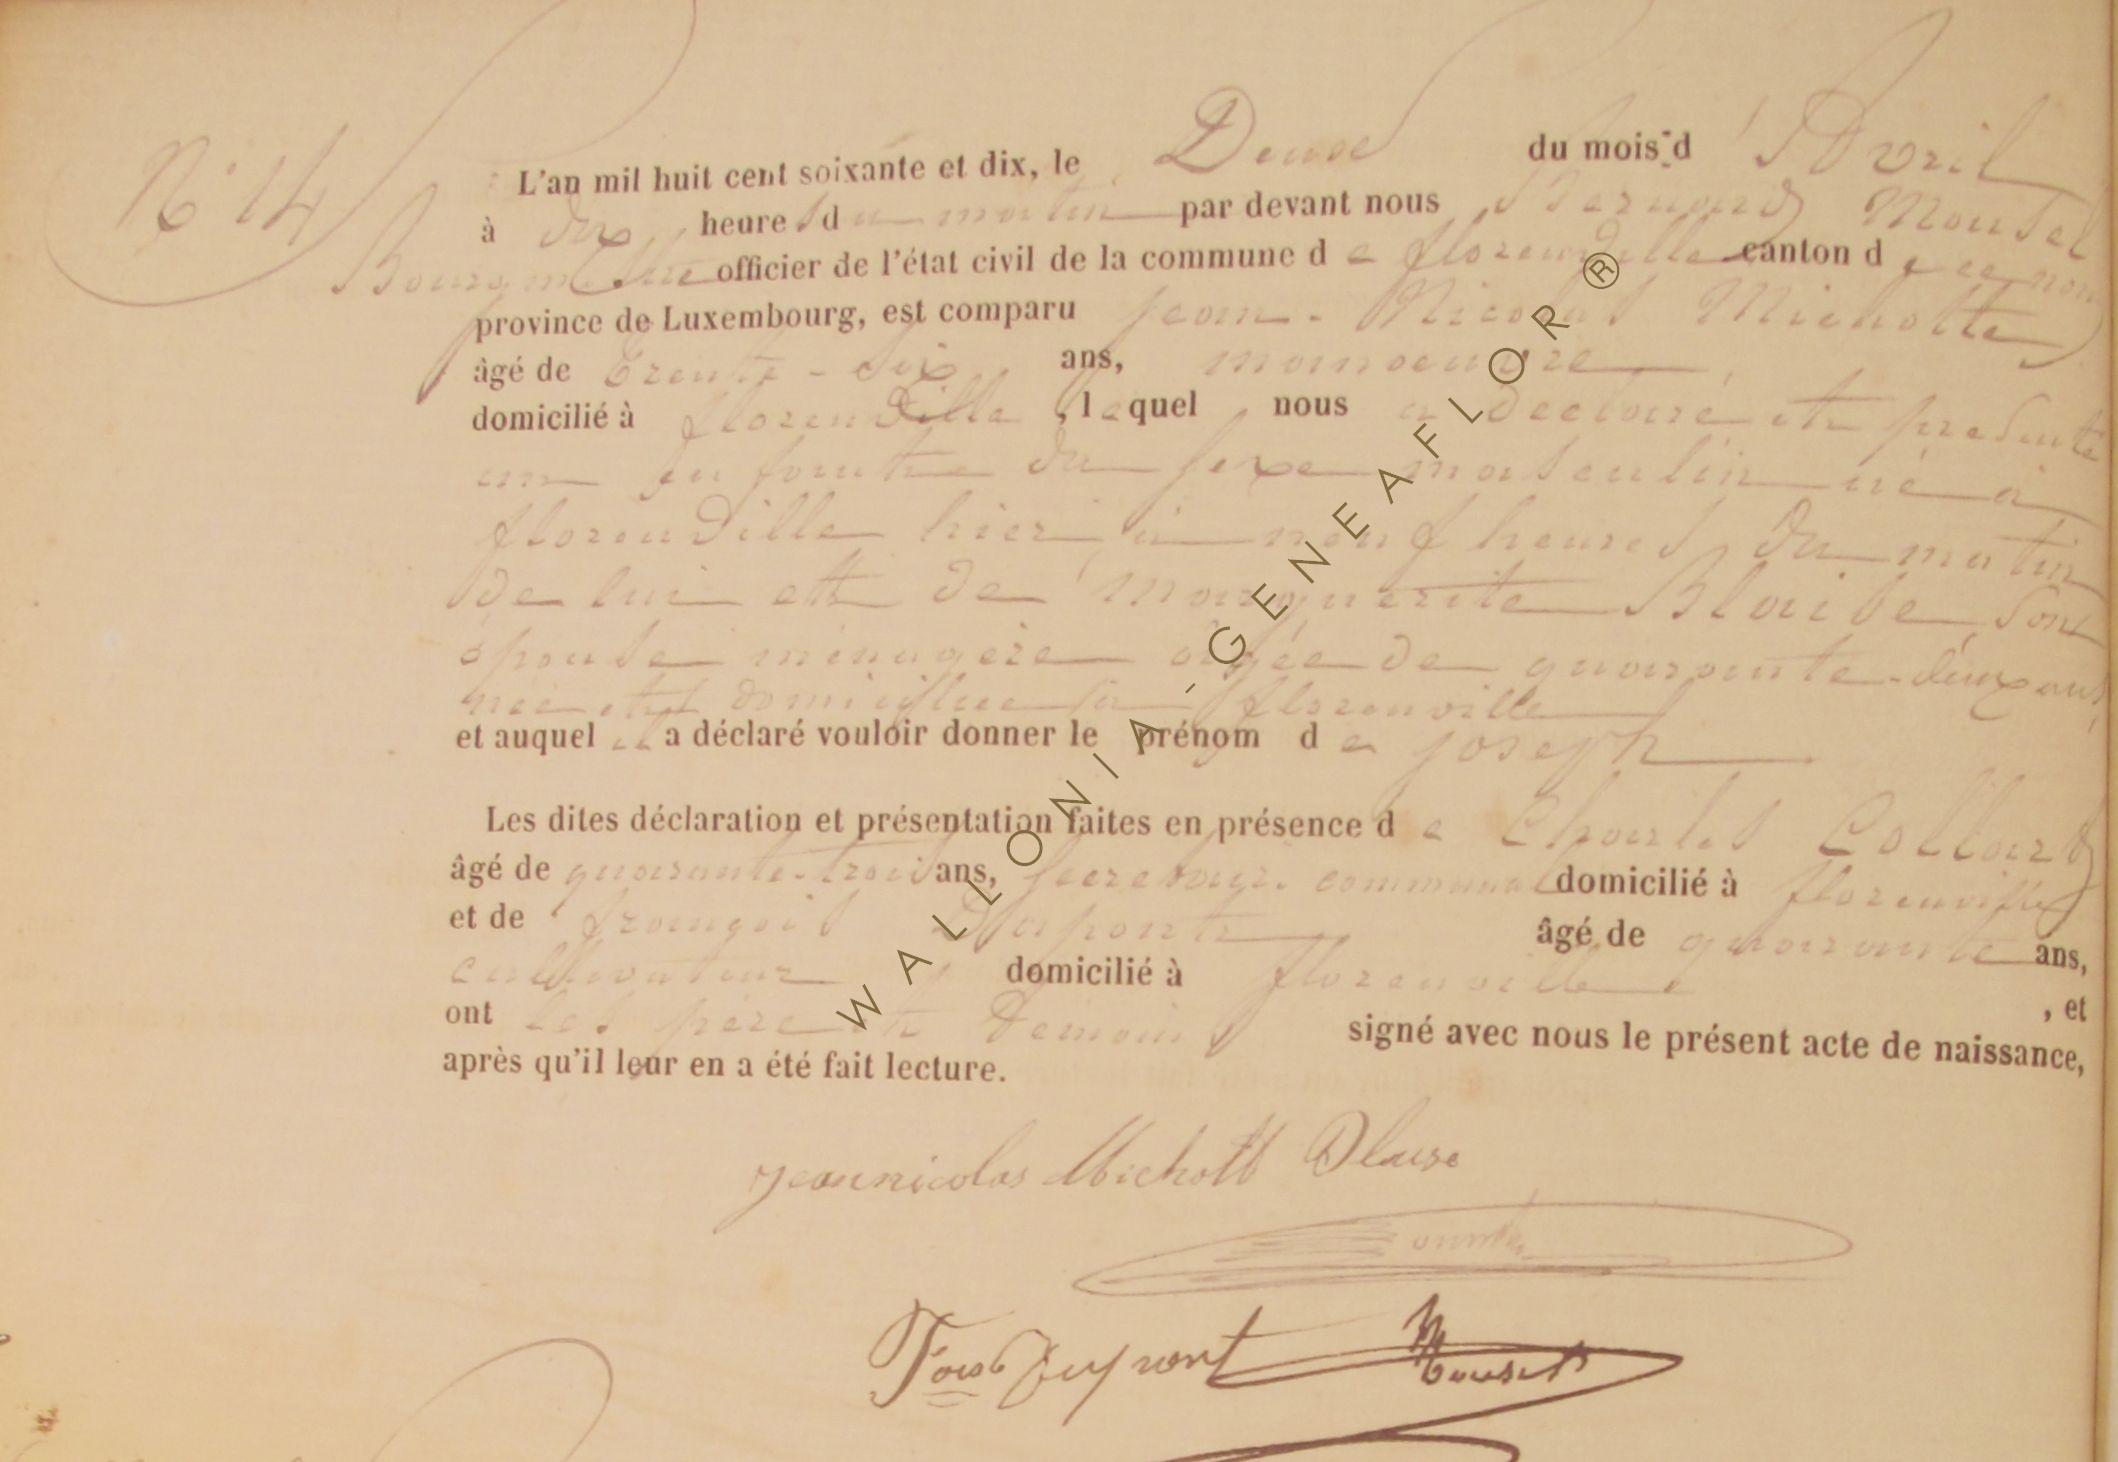 N° 14
L'an mil huit cent soixante et dix, le Deux du mois d'Avril
à dix heures du matin par devant nous Bernard Mousel
Bourgmestre officier de l'état civil de la commune de florenville canton de ce nom
province de Luxembourg, est comparu jean-Nicolas Michotte
âgé de trente-six ans, manoeuvre
domicilié à florenville, lequel nous a déclaré et présenté
un enfant du sexe masculin né à
florenville hier à neuf heures du matin
de lui et de Marguerite Blaise son
épouse ménagère âgée de quarante-deux ans
née et domiciliée à florenville
et auquel il a déclaré vouloir donner le prénom de joseph
Les dites déclaration et présentation faites en présence de Charles Collard
âgé de quarante-trois ans, secretaire communal domicilié à florenville
et de françois Dupont âgé de quarante ans,
cultivateur domicilié à florenville, et
ont les père et témoins signé avec nous le présent acte de naissance,
après qu'il leur en a été fait lecture.
jeannicolas Michott Blaise
Dupont
WALLONIA-GENEAFLOR ®